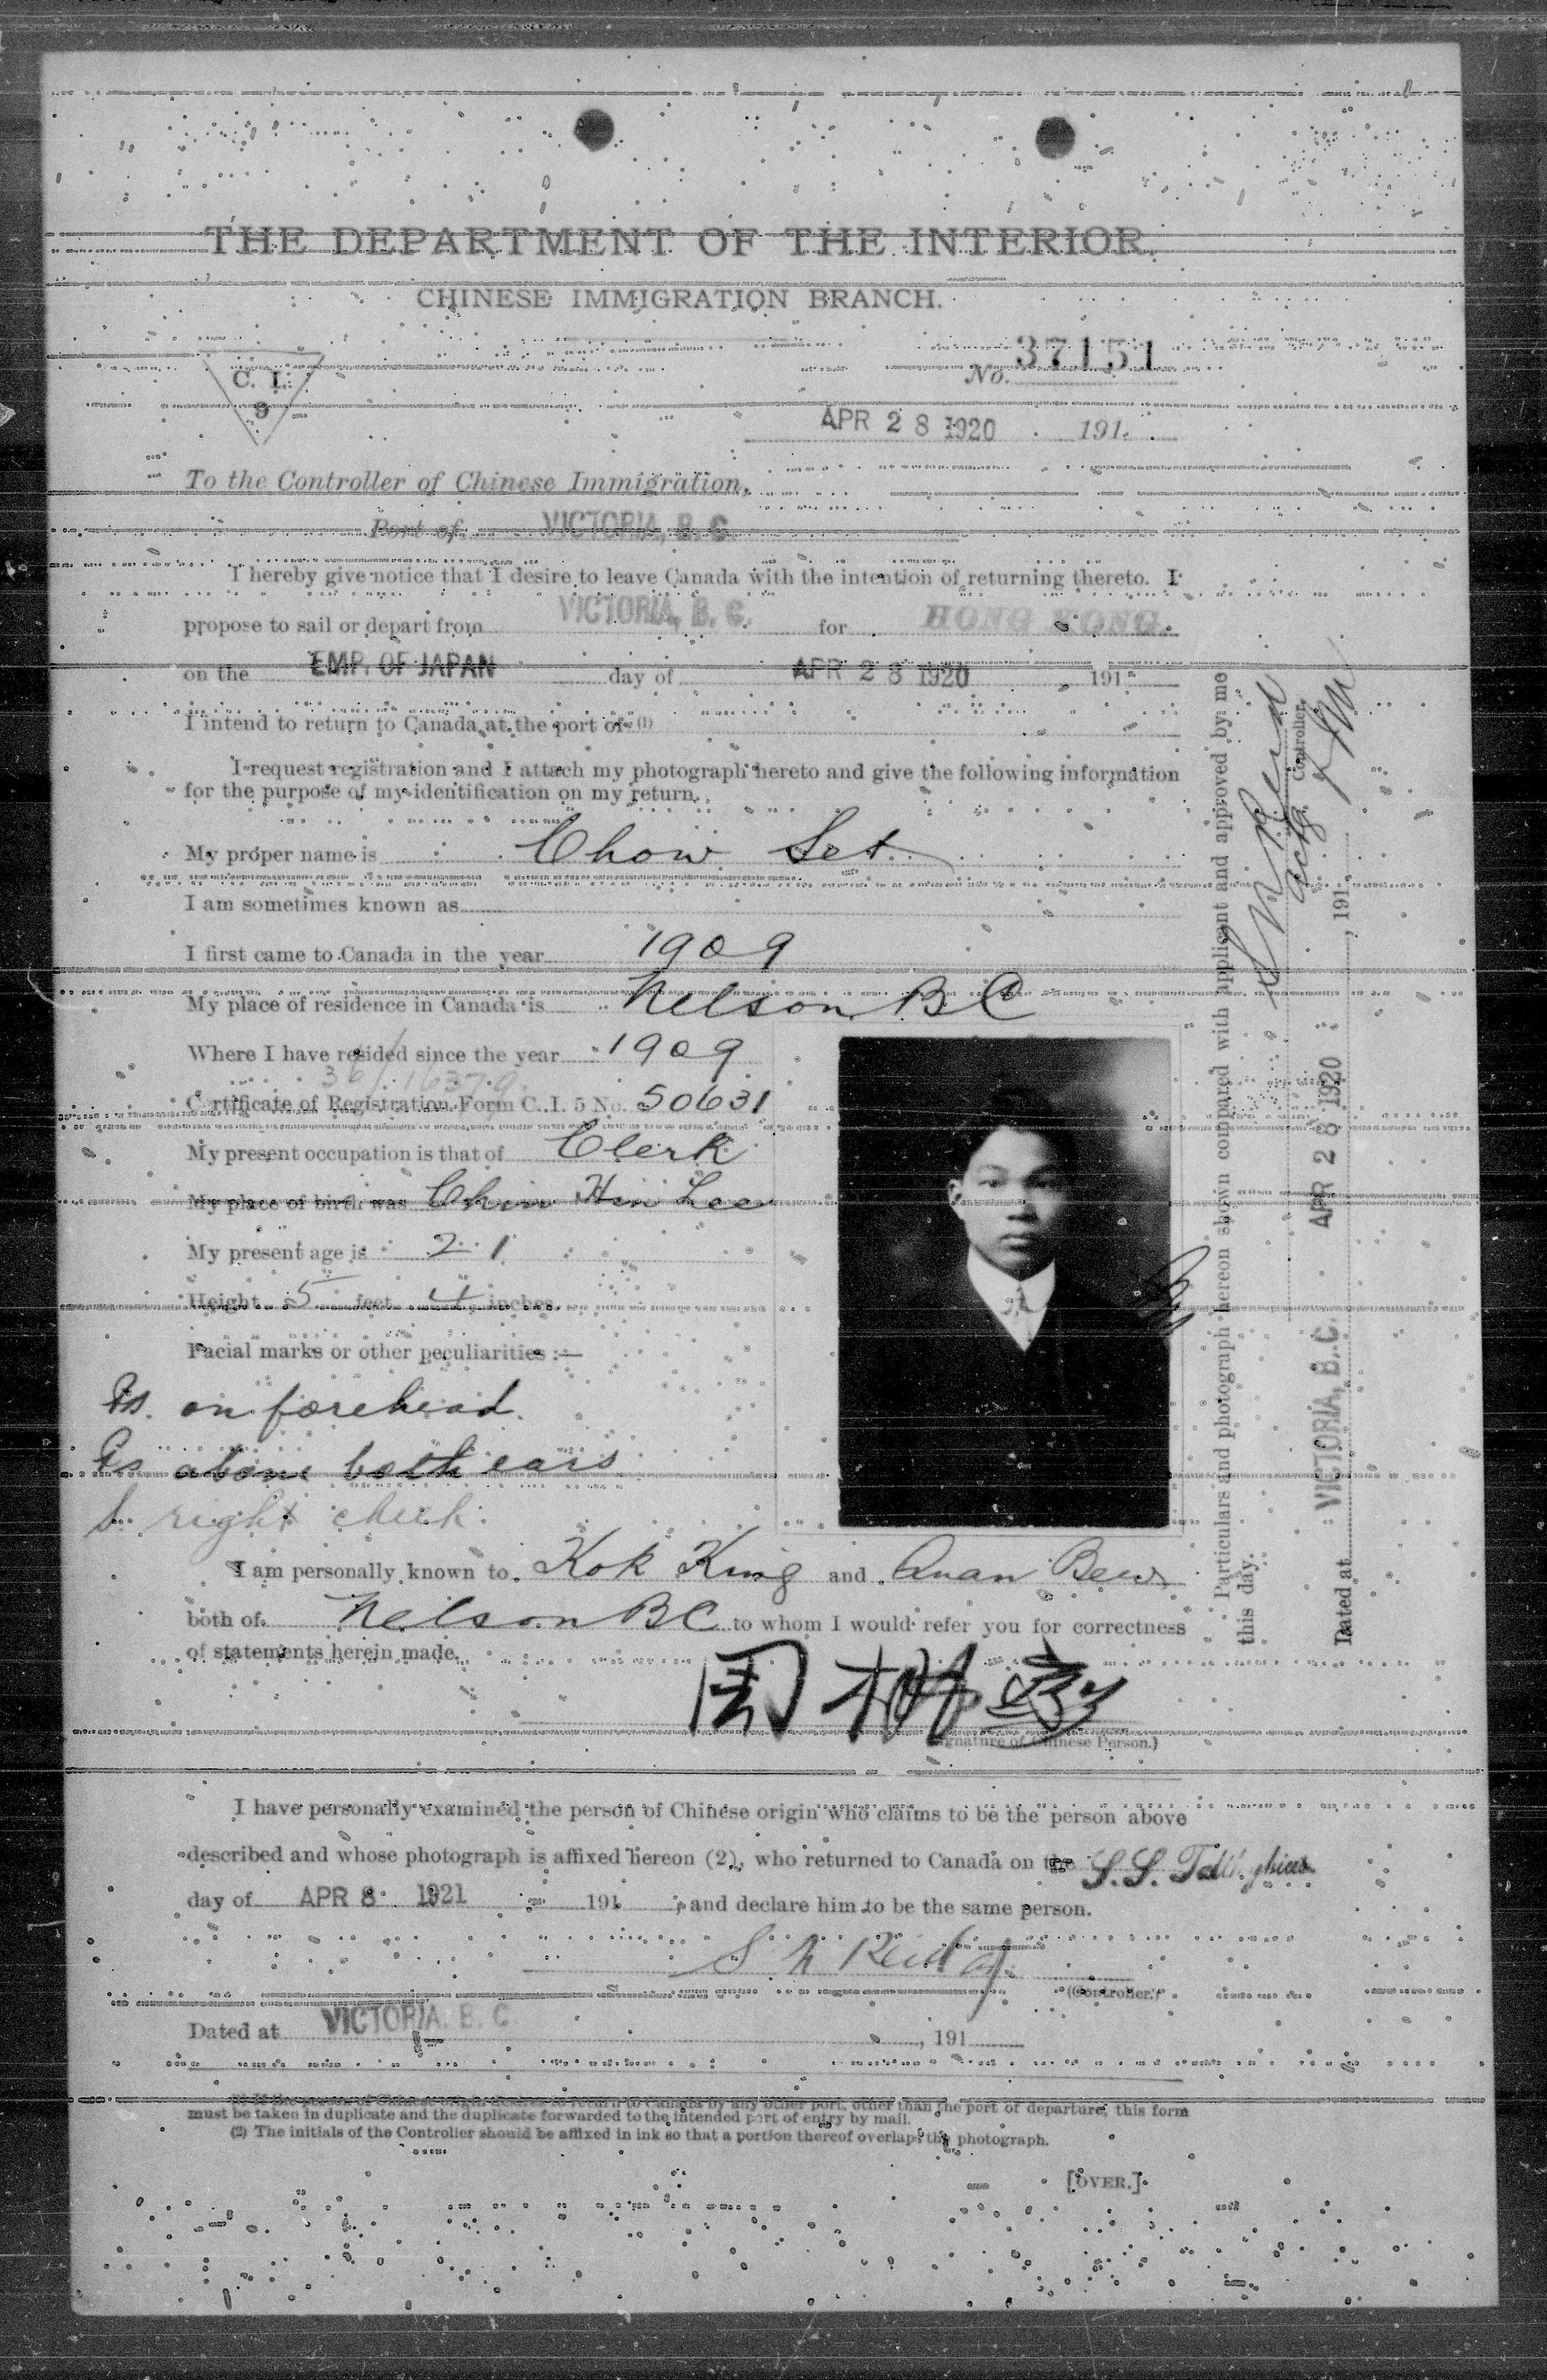 THE DEPARTMENT OF THE INTERIOR.
CHINESE IMMIGRATION BRANCH.
C. I.
9
No. 37151
APR 28 1920 191
To the Controller of Chinese Immigration,
Port of VICTORIA, B. C.
I hereby give notice that I desire to leave Canada with the intention of returning thereto. I
propose to sail or depart from VICTORIA, B. C. for HONG KONG.
on the EMP. OF JAPAN day of APR 28 1920 191
I intend to return to Canada at the port of (1)
I request registration and I attach my photograph hereto and give the following information
for the purpose of my identification on my return.
My proper name is Chow Set
I am sometimes known as
I first came to Canada in the year 1909
My place of residence in Canada is Nelson B C
Where I have resided since the year 1909
36/16379
Certificate of Registration Form C. I. 5 No. 50631
My present occupation is that of Clerk
My place of birth was Chin Hin Lee
My present age is 21
Height 5 feet 4 inches.
Facial marks or other peculiarities :—
Ps. on forehead.
Ps above both ears
S. right cheek.
I am personally known to Kok King and Quan Bew
both of Nelson B C to whom I would refer you for correctness
of statements herein made.
周
(Signature of Chinese Person.)
Particulars and photograph hereon shown compared with applicant and approved by me
this day.
S N Reid
Actg Controller
Dated at VICTORIA, B. C. APR 28 1920, 191
I have personally examined the person of Chinese origin who claims to be the person above
described and whose photograph is affixed hereon (2), who returned to Canada on the S.S.
day of APR 8 1921 191 ; and declare him to be the same person.
S N Reid
(Controller.)
Dated at VICTORIA, B. C , 191
(1) If the person of Chinese origin desires to return to Canada by any other port, other than the port of departure, this form
must be taken in duplicate and the duplicate forwarded to the intended port of entry by mail.
(2) The initials of the Controller should be affixed in ink so that a portion thereof overlaps the photograph.
[OVER.]